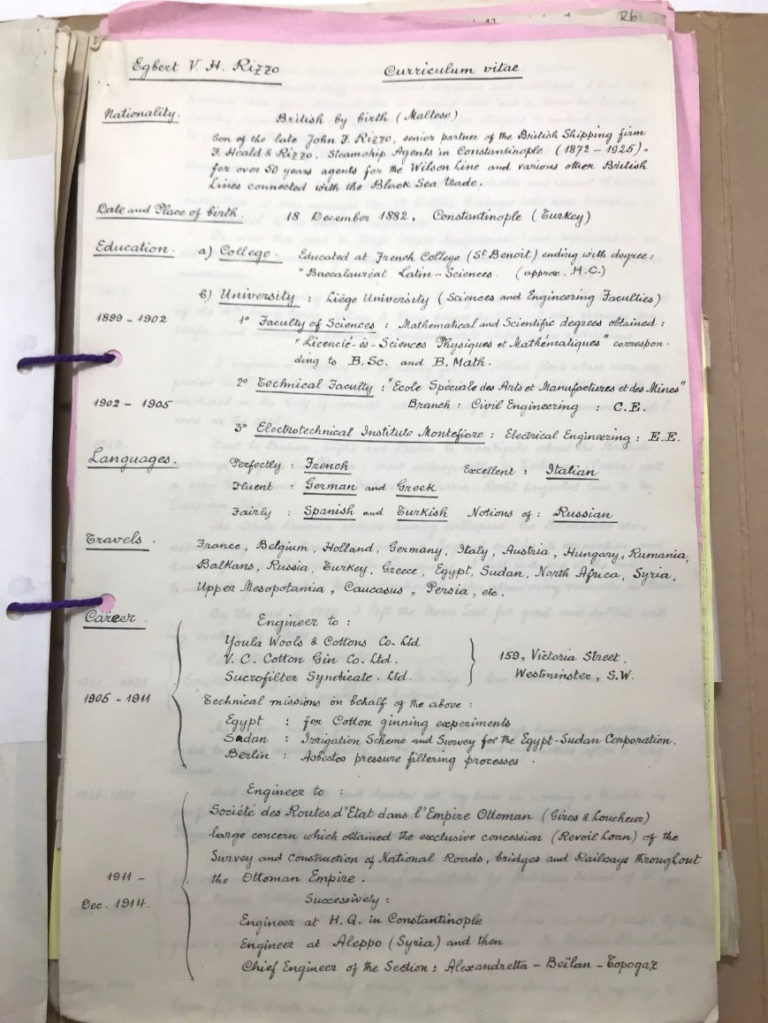 26
Egbert V. H. Rizzo Curriculum vitae
Nationality. British by birth (Maltese)
Son of the late John F. Rizzo, senior partner of the British Shipping firm
F. Heald & Rizzo. Steamship Agents in Constantinople (1872 - 1925) -
for over 50 years agents for the Wilson Line and various other British
Lines connected with the Black Sea Trade.
Date and Place of birth. 18 December 1882, Constantinople (Turkey)
Education. a) College. Educated at French College (St Benoit) ending with degree:
"Baccalauréat Latin-Sciences. (approx. M.C.)
b) University: Liége University (Sciences and Engineering Faculties)
1899 - 1902 1° Faculty of Sciences: Mathematical and Scientific degrees obtained:
"Licencié-ès-Sciences Physiques et Mathématiques" correspon-
ding to B.Sc. and B. Math.
2° Technical Faculty: "Ecole Spéciale des Arts et Manufactures et des Mines"
1902 - 1905 Branch: Civil Engineering: C.E.
3° Electrotechnical Institute Montefiore: Electrical Engineering: E.E.
Languages. Perfectly: French Excellent: Italian
Fluent: German and Greek
Fairly: Spanish and Turkish Notions of: Russian
Travels. France, Belgium, Holland, Germany, Italy, Austria, Hungary, Rumania,
Balkans, Russia, Turkey, Greece, Egypt, Sudan, North Africa, Syria,
Upper Mesopotamia, Caucasus, Persia, etc.
Career. Engineer to:
Youla Wools & Cottons Co. Ltd.
V. C. Cotton Gin Co. Ltd. 159, Victoria Street.
Sucrofilter Syndicate. Ltd. Westminster, S.W.
1905 - 1911 Technical missions on behalf of the above:
Egypt: for Cotton ginning experiments
Sudan: Irrigation Scheme and Survey for the Egypt-Sudan Corporation.
Berlin: Asbestos pressure filtering processes.
Engineer to:
Société des Routes d'Etat dans l'Empire Ottoman (Giros & Loucheur)
large concern which obtained the exclusive concession (Revoil Loan) of the
Survey and Construction of National Roads, bridges and Railways throughout
1911 - the Ottoman Empire.
Dec. 1914. Successively:
Engineer at H.Q. in Constantinople
Engineer at Aleppo (Syria) and then
Chief Engineer of the Section: Alexandretta - Beïlan - Topogaz